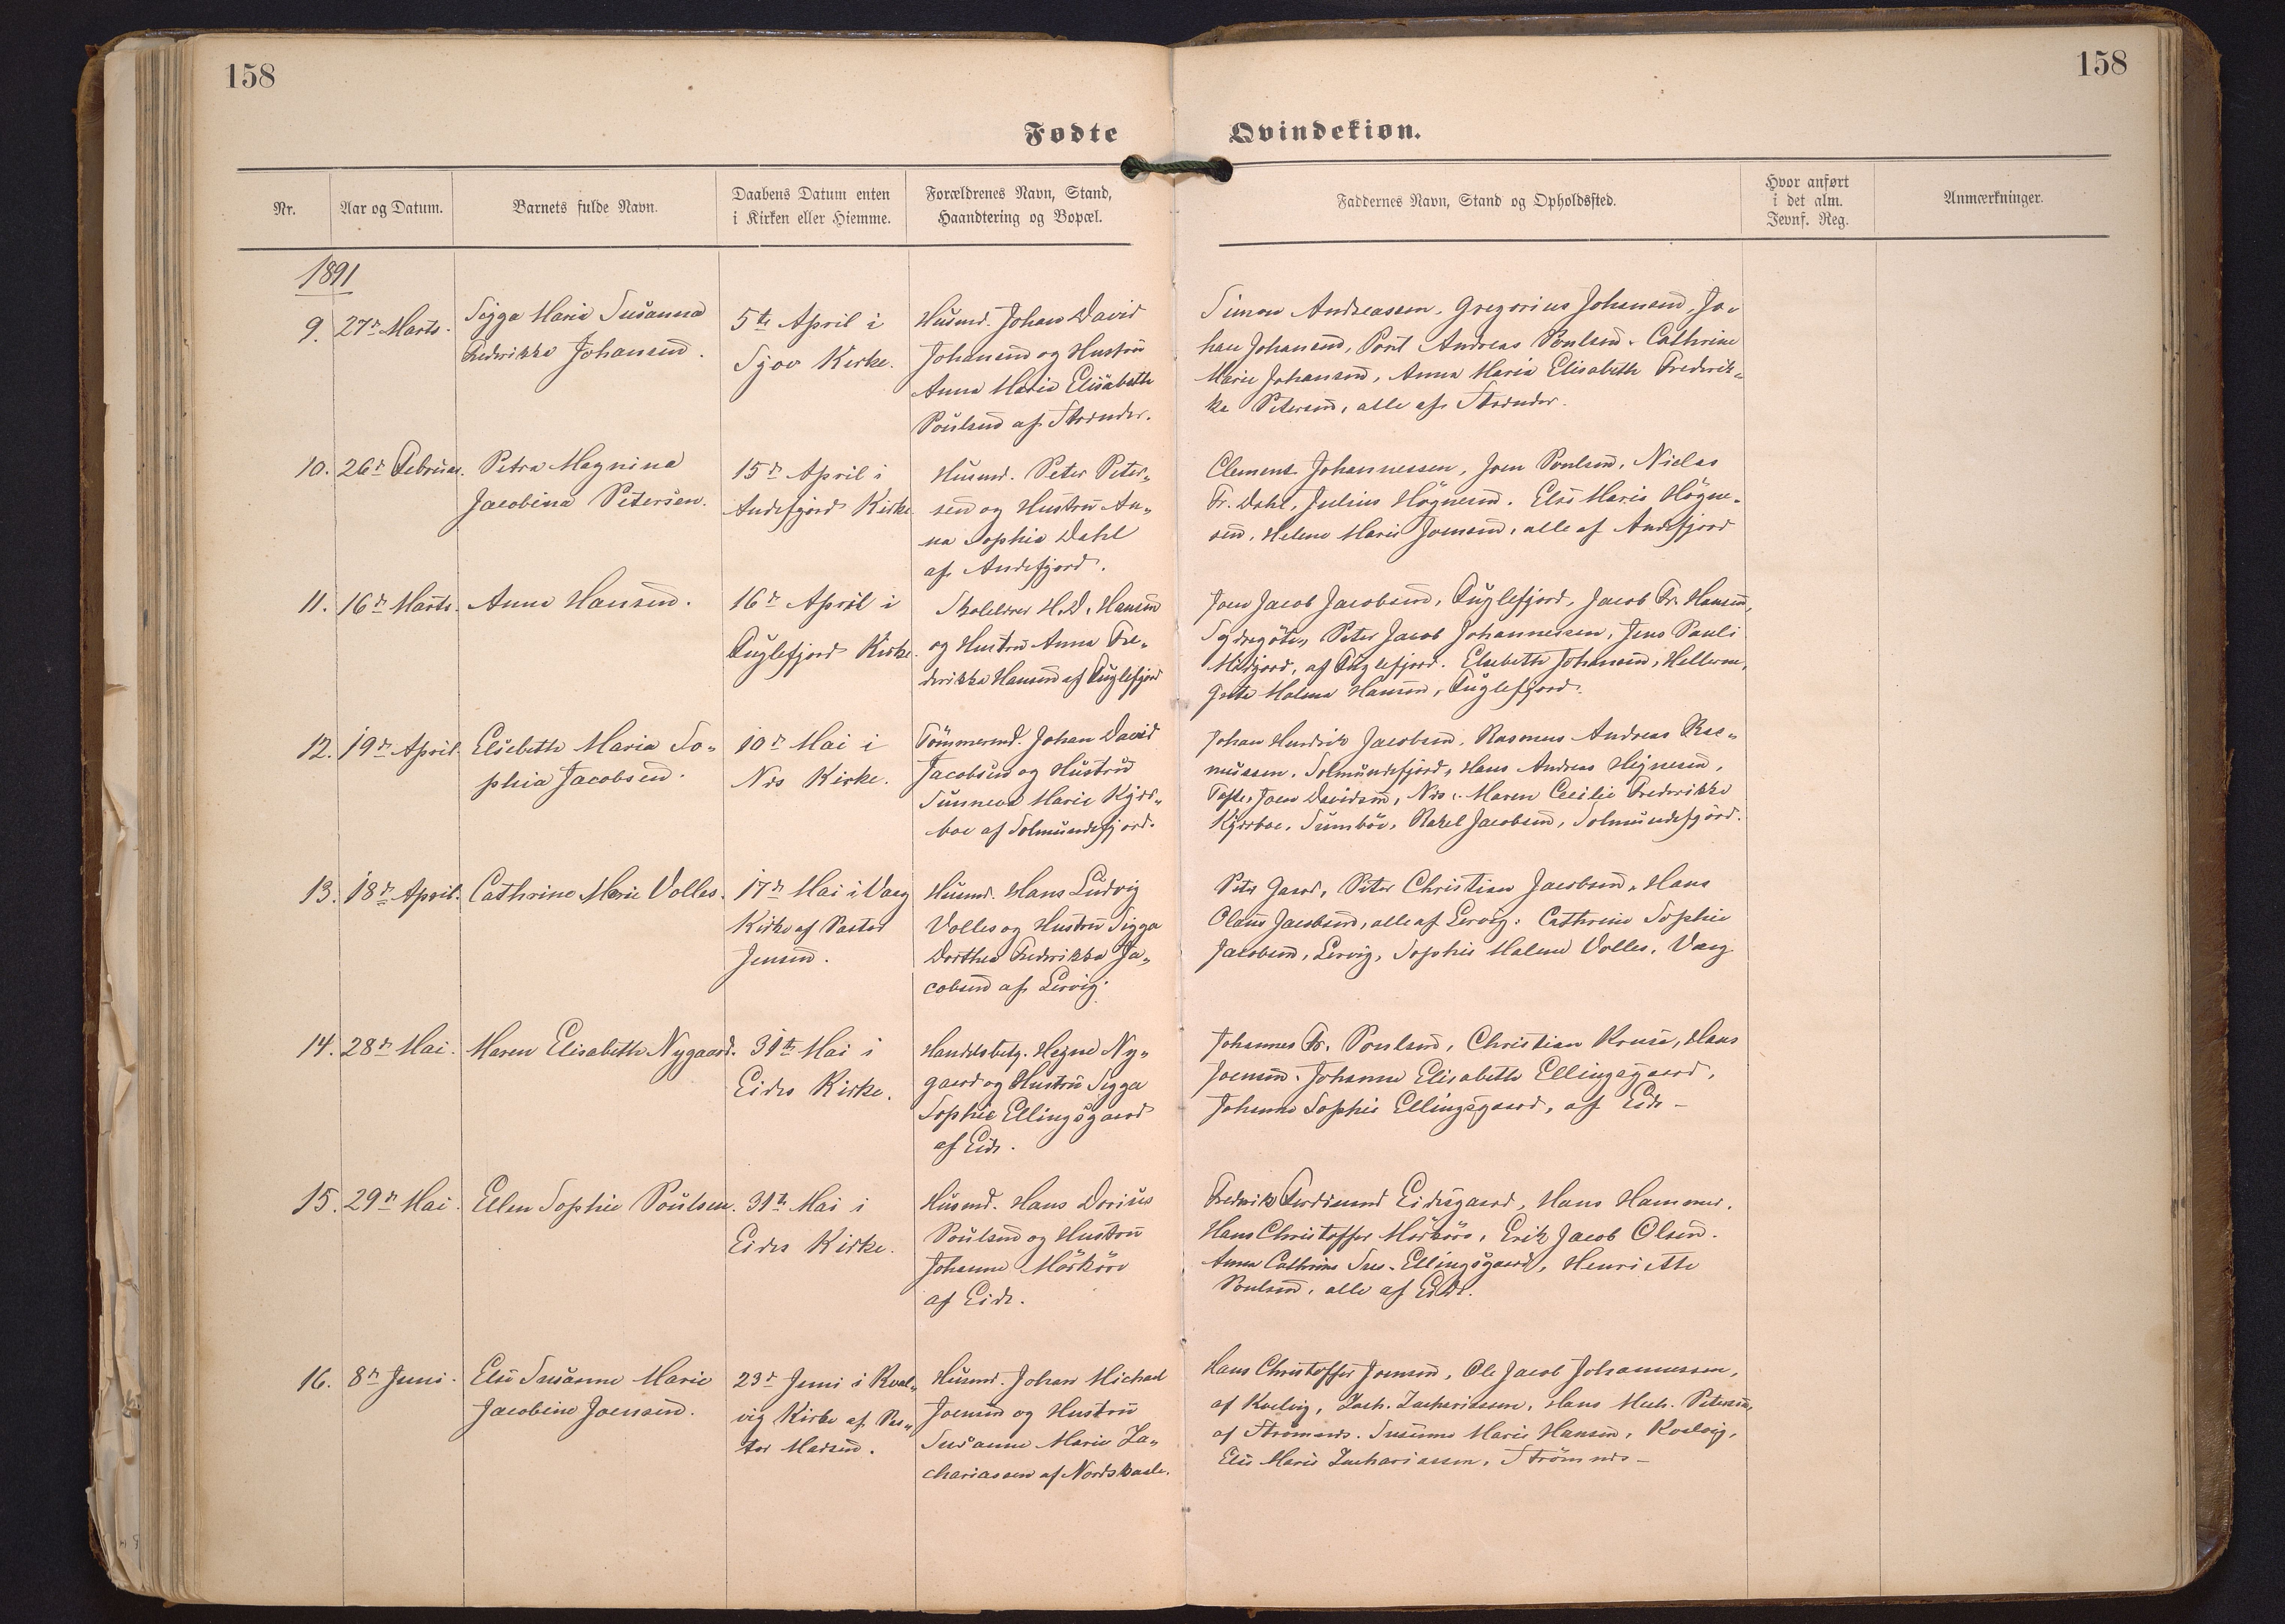 158
158
Fødte
Qvindekiøn.
Nr.
Aar og Datum.
Barnets fulde Navn.
Daabens Datum enten
i Kirken eller Hiemme.
Forældrenes Navn, Stand,
Haandtering og Bopæl.
Faddernes Navn, Stand og Opholdssted.
Hvor anført
i det alm.
Jevnf. Reg.
Anmærkninger.
1891
9.
27de Marts.
Sigga Maria Susanna
Frederikke Johansen.
5te April i
Sjov Kirke.
Husmd. Johan David
Johansen og Hustru
Anna Maria Elisabeth
Poulsen af Strænder.
Simon Andreassen, Gregorius Johansen, Jo-
han Johansen, Poul Andreas Poulsen. Cathrine
Marie Johansen, Anna Maria Elisabeth Frederik-
ke Petersen, alle af Strænder.
10.
26de Februar.
Petra Magnina
Jacobina Petersen.
15de April i
Andefjord Kirke
Husmd. Peter Peter-
sen og Hustru An-
na Sophie Dahl
af Andefjord.
Clement Johannessen, Joen Poulsen, Niclas
Fr. Dahl, Julius Högnesen. Elsi Maria Högne-
sen, Helene Marie Joensen, alle af Andefjord
11.
16de Marts.
Anna Hansen.
16de April i
Fuglefjord Kirke.
Skolelærer H. D. Hansen
og Hustru Anna Fre-
derikka Hansen af Fuglefjord
Joen Jacob Jacobsen, Fuglefjord, Jacob Fr. Hansen,
Sydregöte, Peter Jacob Johannessen, Jens Pauli
Midjord, af Fuglefjord. Elsebeth Johansen, Hellerne,
Malene Hansen, Fuglefjord.
12.
19de April.
Elsebeth Maria So-
phia Jacobsen.
10de Mai i
Næs Kirke.
Tömmermd. Johan David
Jacobsen og Hustru
Sunneva Marie Kjær-
boe af Solmundefjord.
Johan Hendrik Jacobsen, Rasmus Andreas Ras-
mussen, Solmundefjord, Hans Andreas Högnesen,
Tofte, Joen Davidsen, Næs. Maren Cecilie Frederikke
Kjærboe, Sumbøe, Rakel Jacobsen, Solmundefjord.
13.
18de April.
Cathrine Marie Volles.
17de Mai i Vaag
Kirke af Pastor
Jensen.
Husmd. Hans Ludvig
Volles og Hustru Sigga
Dorthea Frederikka Ja-
cobsen af Lervig.
Peter Gaard, Peter Christian Jacobsen, Hans
Olaus Jacobsen, alle af Lervig. Cathrine Sophie
Jacobsen, Lervig, Sophie Malene Volles, Vaag
14.
28de Mai.
Maren Elisabeth Nygaard.
31te Mai i
Eides Kirke.
Handelsbetj. Hegne Ny-
gaard og Hustru Sigga
Sophie Ellingsgaard
af Eide.
Johannes Fr. Poulsen, Christian Kruse, Hans
Joensen. Johanne Elisabeth Ellingsgaard,
Johanne Sophie Ellingsgaard, af Eide -
15.
29de Mai.
Ellen Sophie Poulsen.
31te Mai i
Eides Kirke.
Husmd. Hans Dorius
Poulsen og Hustru
Johanne Mörköre
af Eide.
Fredrik Ferdinand Eidesgaard, Hans Hammer.
Hans Christoffer Mörköre, Erik Jacob Olsen.
Anna Cathrine Sus. Ellingsgaard, Henriette
Poulsen, alle af Eide.
16.
8de Juni.
Elsi Susanne Marie
Jacobine Joensen.
23de Juni i Kval-
vig Kirke af Pas-
tor Madsen.
Husmd. Johan Michael
Joensen og Hustru
Susanne Marie Za-
chariassen af Nordskaale.
Hans Christoffer Joensen, Ole Jacob Johannessen,
af Kvalvig, Zach. Zachariassen, Hans Mich. Petersen,
af Strömnæs. Susanne Marie Hansen, Kvalvig,
Elsi Marie Zachariassen, Strömnæs -